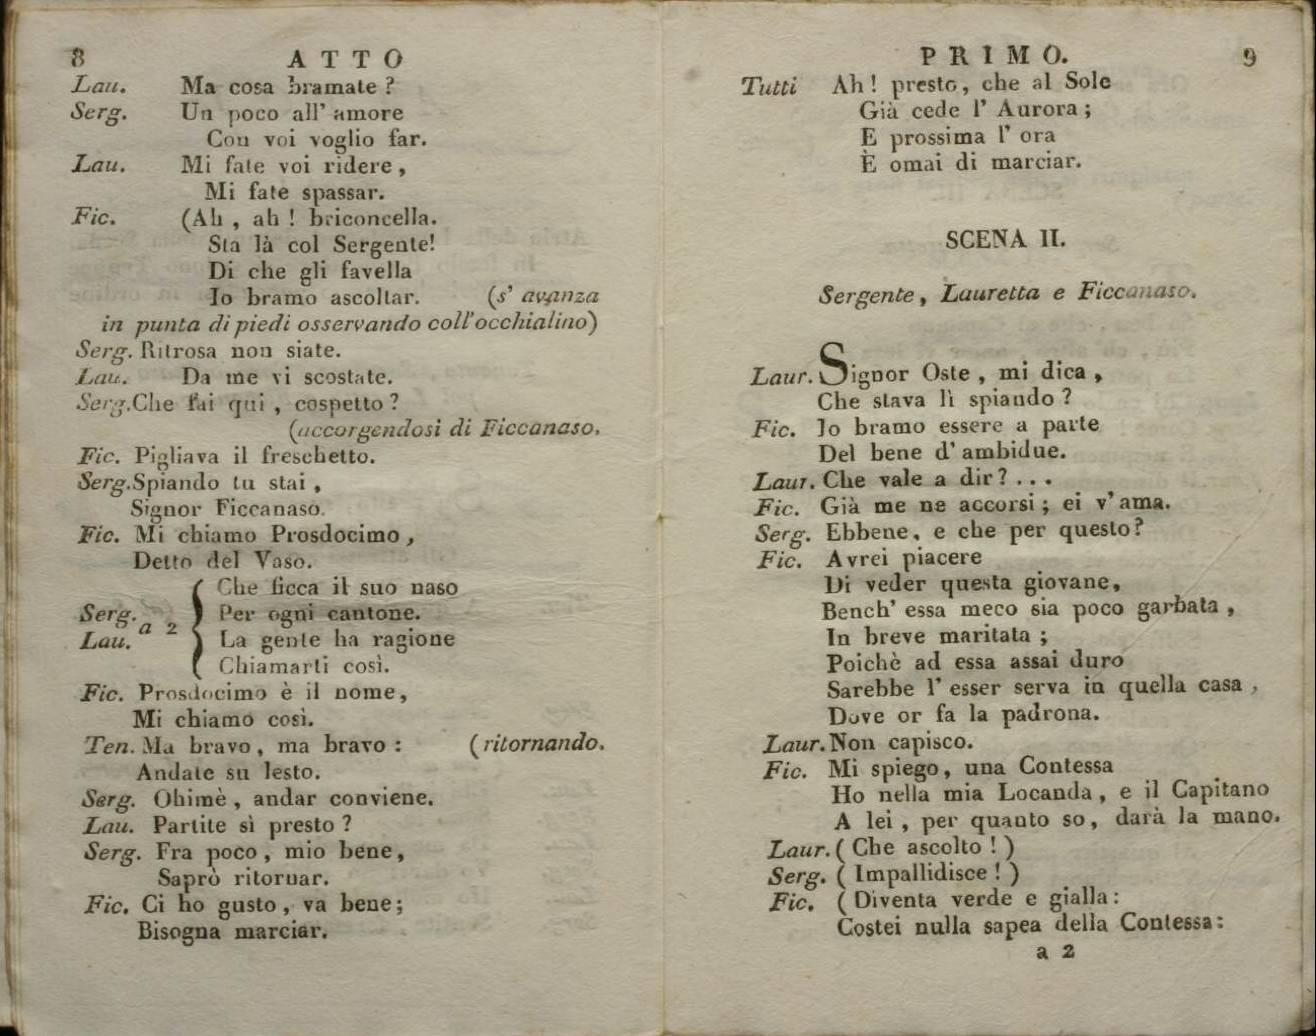 8 ATTO
Lau. Ma cosa bramate ?
Serg. Un poco all' amore
Con voi voglio far.
Lau. Mi fate voi ridere ,
Mi fate spassar.
Fic. (Ah , ah ! briconcella.
Sta là col Sergente!
Di che gli favella
Io bramo ascoltar. (s' avanza
in punta di piedi osservando coll'occhialino)
Serg. Ritrosa non siate.
Lau. Da me vi scostate.
Serg. Che fai qui , cospetto ?
(accorgendosi di Ficcanaso.
Fic. Pigliava il freschetto.
Serg. Spiando tu stai ,
Signor Ficcanaso.
Fic. Mi chiamo Prosdocimo ,
Detto del Vaso.
Che ficca il suo naso
Serg. Per ogni cantone.
Lau. a 2 La gente ha ragione
Chiamarti così.
Fic. Prosdocimo è il nome,
Mi chiamo così.
Ten. Ma bravo , ma bravo : (ritornando.
Andate su lesto.
Serg. Ohimè , andar conviene.
Lau. Partite sì presto ?
Serg. Fra poco , mio bene,
Saprò ritornar.
Fic. Ci ho gusto , va bene;
Bisogna marciar.
PRIMO. 9
Tutti Ah ! presto, che al Sole
Già cede l' Aurora ;
E prossima l' ora
È omai di marciar.
SCENA II.
Sergente , Lauretta e Ficcanaso.
Laur. Signor Oste , mi dica ,
Che stava lì spiando ?
Fic. Io bramo essere a parte
Del bene d' ambidue.
Laur. Che vale a dir ? . . .
Fic. Già me ne accorsi ; ei v' ama.
Serg. Ebbene, e che per questo?
Fic. Avrei piacere
Di veder questa giovane,
Bench' essa meco sia poco garbata ,
In breve maritata ;
Poichè ad essa assai duro
Sarebbe l' esser serva in quella casa ,
Dove or fa la padrona.
Laur. Non capisco.
Fic. Mi spiego, una Contessa
Ho nella mia Locanda , e il Capitano
A lei , per quanto so, darà la mano.
Laur. ( Che ascolto ! )
Serg. ( Impallidisce ! )
Fic. ( Diventa verde e gialla :
Costei nulla sapea della Contessa:
a 2